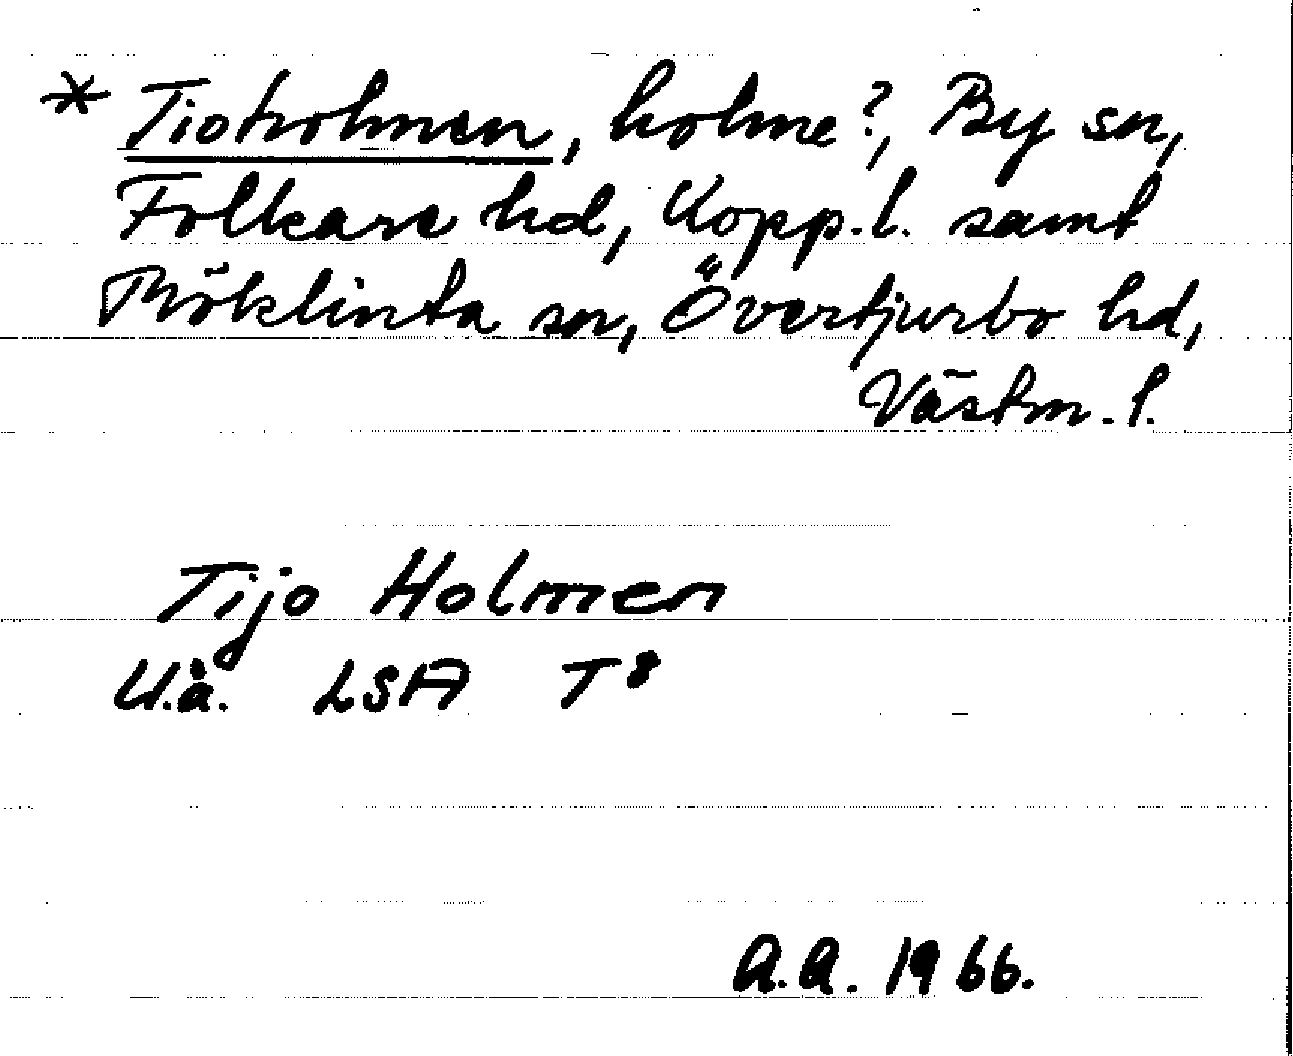 * Tioholmen, holme?, By sn,
Folkare hd, Kopp.l. samt
Möklinta sn, Övertjurbo hd,
Västm.l.
Tijo Holmen
U.å. LSA T8
A.A. 1966.